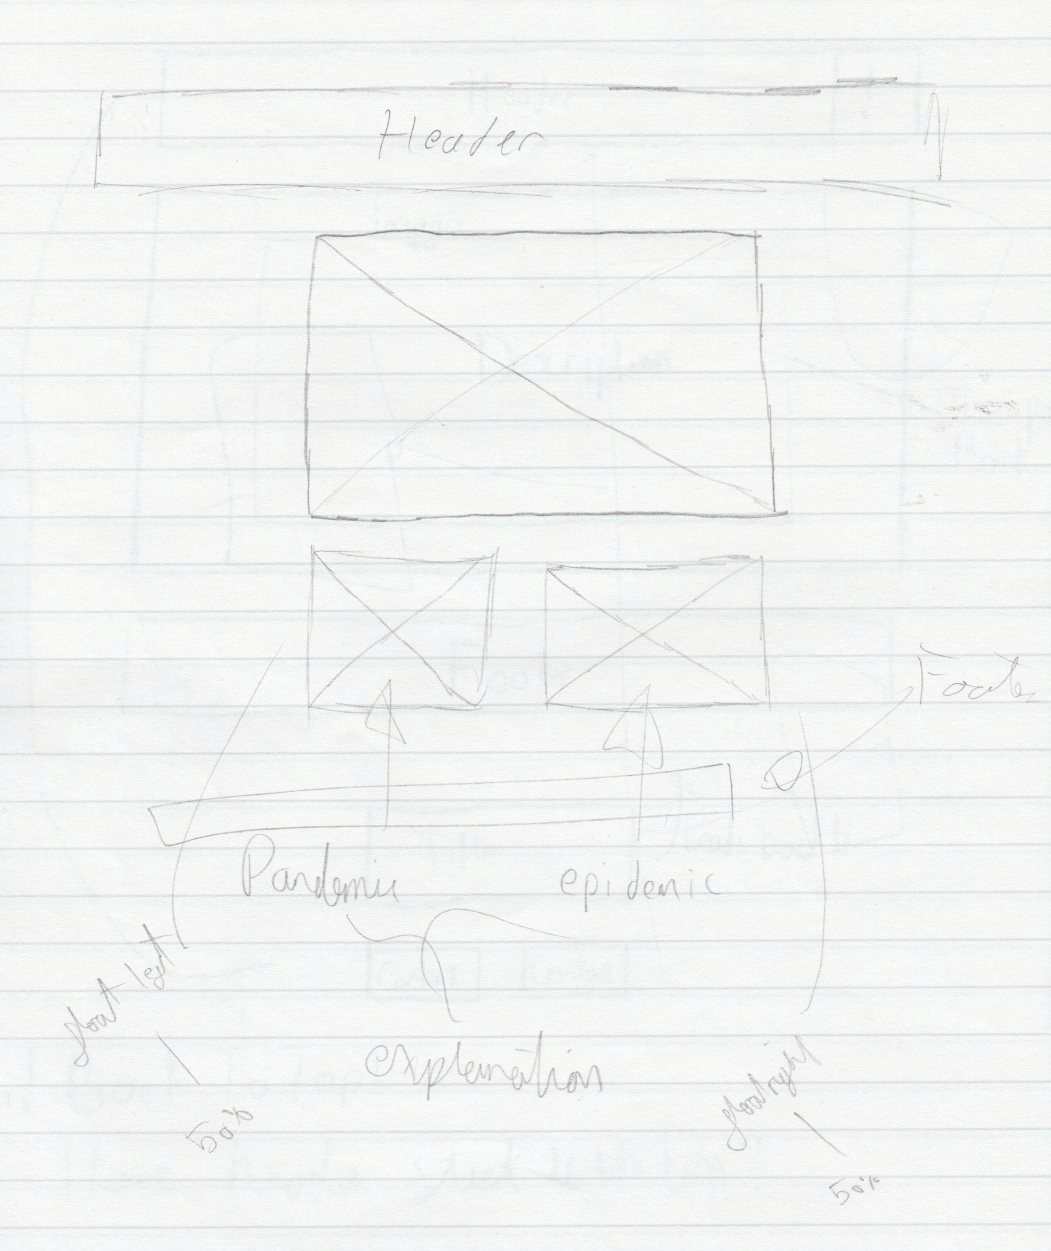 Header
Footer
Pandemic
epidemic
float left
explanation
float right
50%
50%